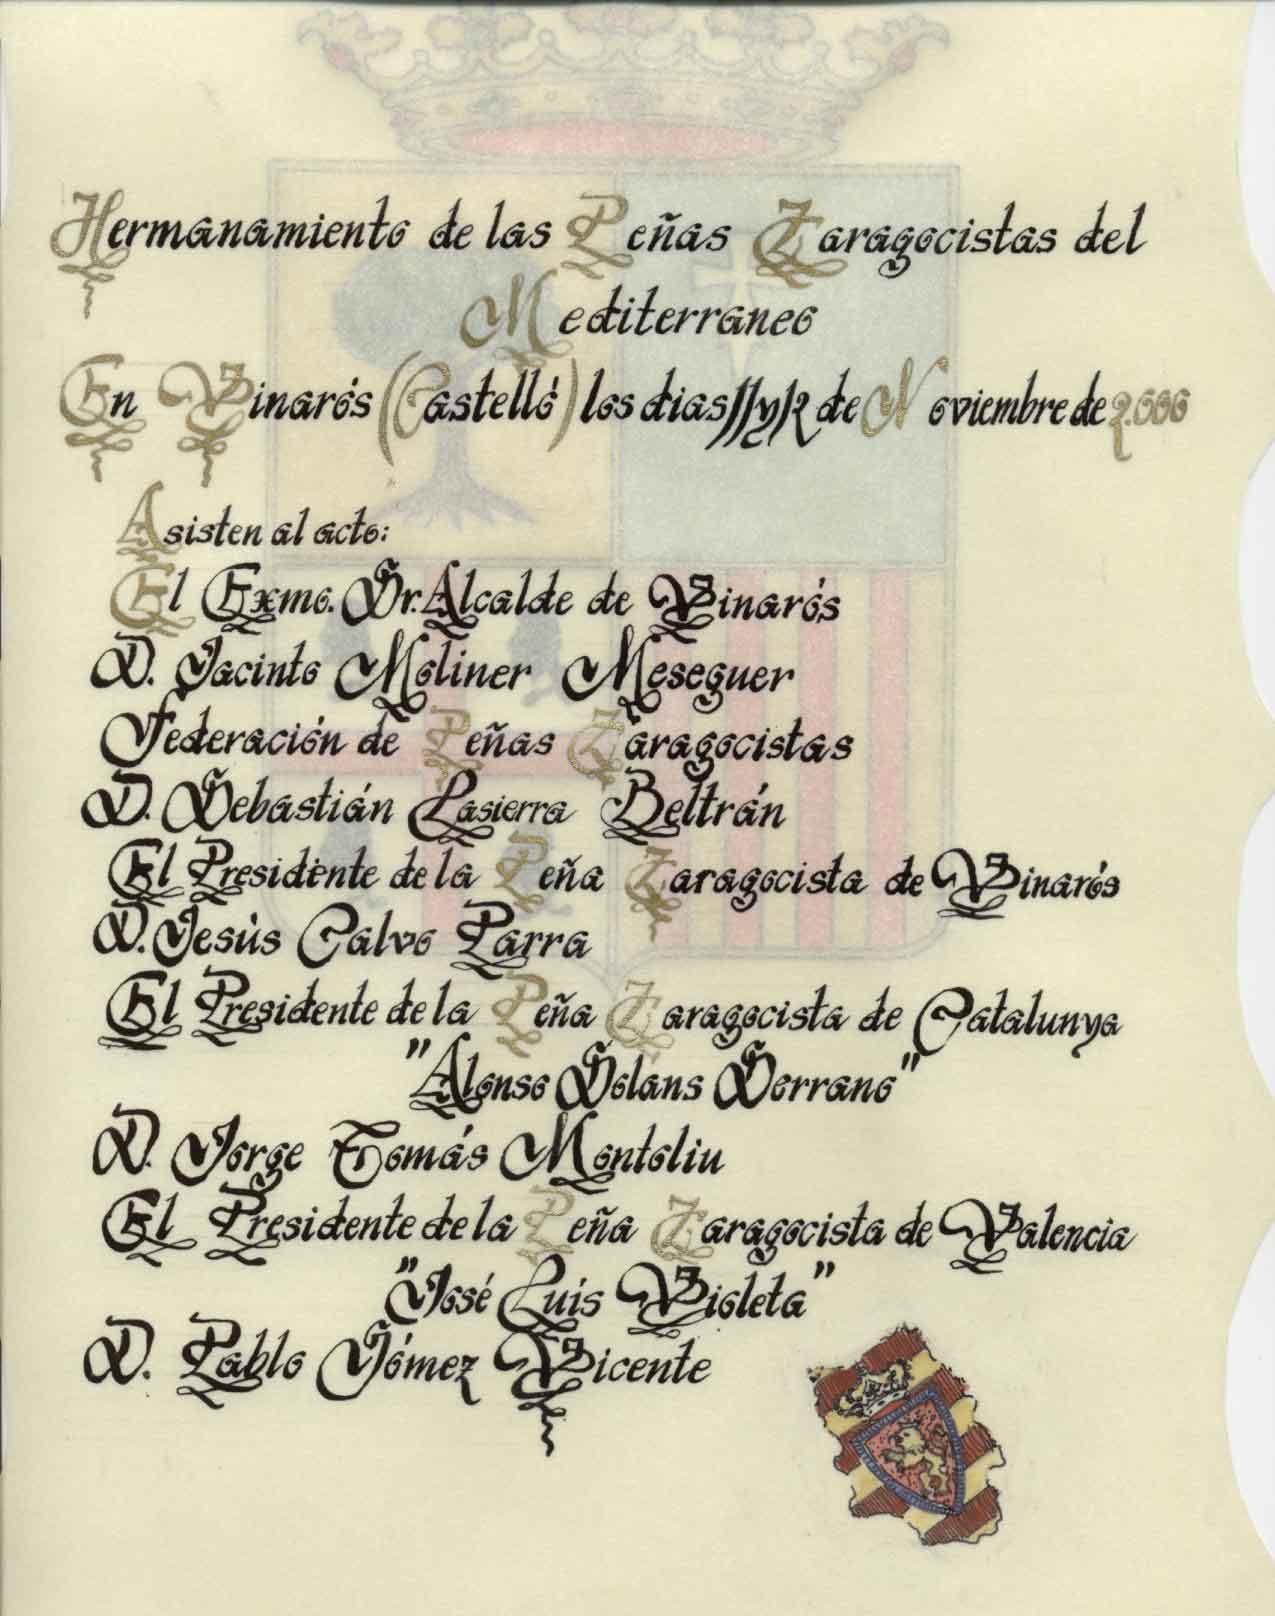 Hermanamiento de las Peñas Zaragocistas del
Mediterraneo
En Vinarós (Castelló) los dias 11 y 12 de Noviembre de 2.000
Asisten al acto:
El Exmo. Sr. Alcalde de Vinarós
D. Jacinto Moliner Meseguer
Federación de Peñas Zaragocistas
D. Sebastián Lasierra Beltrán
El Presidente de la Peña Zaragocista de Vinarós
D. Jesús Calvo Parra
El Presidente de la Peña Zaragocista de Catalunya
"Alonso Solans Serrano"
D. Jorge Tomás Montoliu
El Presidente de la Peña Zaragocista de Valencia
"José Luis Violeta"
D. Pablo Gómez Vicente